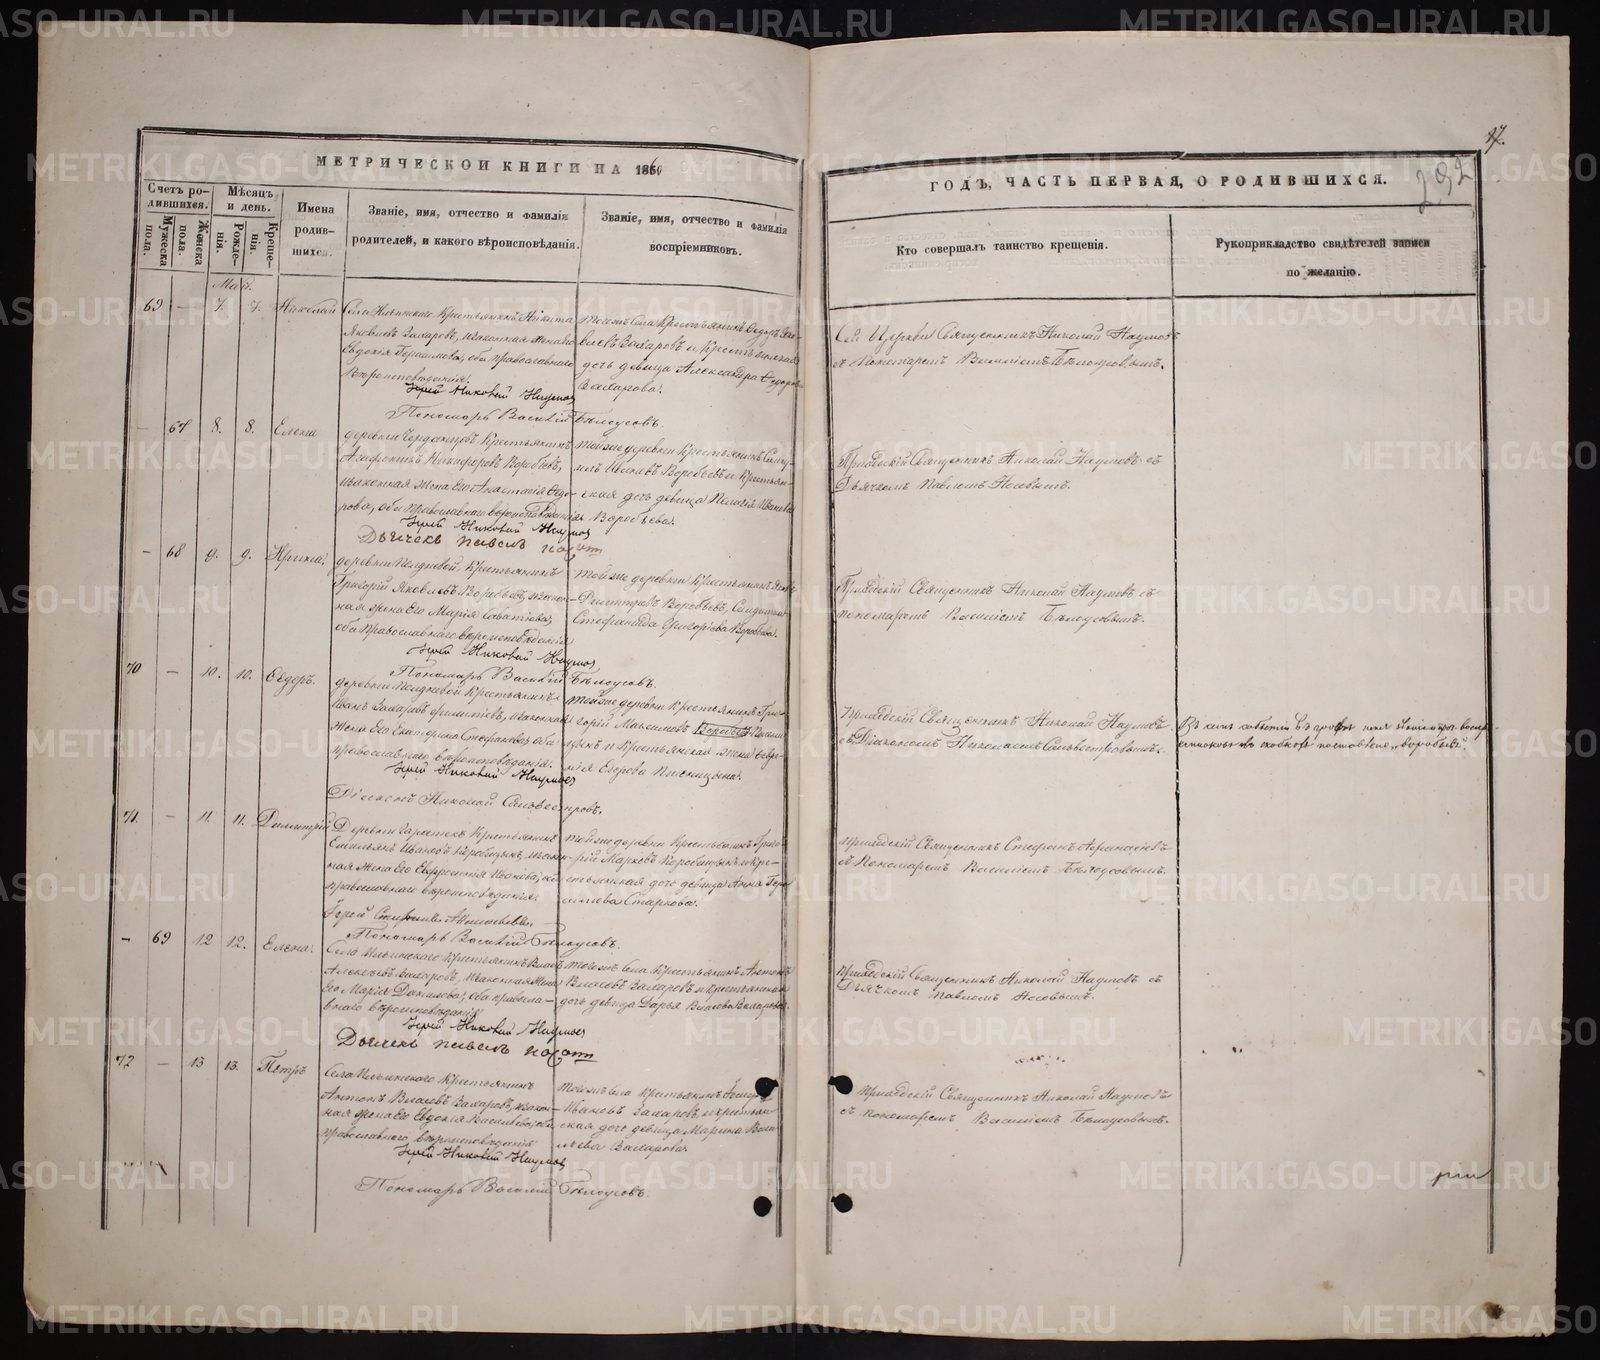 17.
292
МЕТРИЧЕСКОЙ КНИГИ НА 1860
ГОДЪ, ЧАСТЬ ПЕРВАЯ, О РОДИВШИХСЯ.
Счетъ ро-
дившихся.
Мужеска
пола.
Женска
пола.
Мѣсяцъ
и день.
Рожде-
нія.
Креще-
нія.
Имена
родив-
шихся.
Званіе, имя, отчество и фамилія
родителей, и какого вѣроисповѣданія.
Званіе, имя, отчество и фамилія
воспріемниковъ.
Кто совершалъ таинство крещенія.
Рукоприкладство свидѣтелей записи
по желанію.
Май.
69 — 7. 7. Николай
Села Ильинскаго Крестьянинъ Никита
Яковлевъ Захаровъ, законная жена его
Евдокія Герасимова, оба православнаго
вѣроисповѣданія.
Тогожъ Села Крестьянинъ Ѳедоръ
Захаровъ и Крестьянская
дочь девица Александра Ѳедорова
Захарова.
Сей Церкви Священникъ Николай Наумовъ
съ Пономаремъ Василіемъ Бѣлоусовымъ.
Іерей Николай Наумовъ
Пономарь Василій Бѣлоусовъ.
— 67 8. 8. Елена
деревни Крестьянинъ
Никифоровъ Воробьевъ,
законная жена его Анастасія Ѳедо-
рова, оба православнаго вѣроисповѣданія
тойже деревни Крестьянинъ
Воробьевъ и Крестьян-
ская дочь девица Пелагія Иванова
Воробьева.
Приходскій Священникъ Николай Наумовъ съ
Дьячкомъ Павломъ
Іерей Николай Наумовъ
Дьячекъ Павелъ
— 68 9. 9. Ирина.
деревни Крестьянинъ
Григорій Яковлевъ Воробьевъ, закон-
ная жена его Марія Саватіева,
оба православнаго вѣроисповѣданія
тойже деревни Крестьянинъ
Воробьевъ,
Стефанида Григорьева Воробьева.
Приходскій Священникъ Николай Наумовъ съ
пономаремъ Василіемъ Бѣлоусовымъ.
Іерей Николай Наумовъ
Пономарь Василій Бѣлоусовъ.
70 — 10. 10. Ѳедоръ.
деревни Крестьянинъ
Иванъ Захаровъ законная
жена его Екатерина Стефанова, оба
православнаго вѣроисповѣданія.
тойже деревни Крестьянинъ Гри-
горій Максимовъ
и Крестьянская жена
Егорова Пшеницына.
Приходскій Священникъ Николай Наумовъ
съ Діакономъ Николаемъ Сильвестровымъ.
Въ семъ событіи въ графѣ
поставлено „воробьевъ".
Іерей Николай Наумовъ
Діаконъ Николай Сильвестровъ.
71. — 11. 11. Димитрій
Деревни Крестьянинъ
Емильянъ Ивановъ Коробицынъ, закон-
ная жена его Евфросинія Иванова, оба
православнаго вѣроисповѣданія.
тойже деревни Крестьянинъ Григо-
рій Марковъ Коробицынъ и Кре-
стьянская дочь девица Анна
Старкова.
Приходскій Священникъ Стефанъ
съ Пономаремъ Василіемъ Бѣлоусовымъ.
Іерей Стефанъ
Пономарь Василій Бѣлоусовъ.
— 69 12 12. Елена.
Села Ильинскаго Крестьянинъ Власъ
Алексѣевъ Захаровъ, законная жена
его Марія Данилова, оба правосла-
внаго вѣроисповѣданія
тогожъ Села Крестьянинъ Антонъ
Власовъ Захаровъ и Крестьянская
дочь девица Дарья Власова Захарова.
Приходскій Священникъ Николай Наумовъ съ
Дьячкомъ Павломъ
Іерей Николай Наумовъ
Дьячекъ Павелъ
72 — 13 13. Петръ
Села Ильинскаго Крестьянинъ
Антонъ Власовъ Захаровъ, закон-
ная жена его Евдокія Васильева, оба
православнаго вѣроисповѣданія
тогожъ села Крестьянинъ
Ивановъ Захаровъ и крестьян-
ская дочь девица Марина Васи-
льева Захарова
Приходскій Священникъ Николай Наумовъ
съ пономаремъ Василіемъ Бѣлоусовымъ.
Іерей Николай Наумовъ
Пономарь Василій Бѣлоусовъ.
METRIKI.GASO-URAL.RU